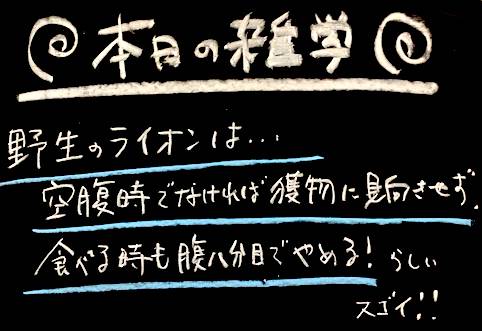 本日の雑学
野生のライオンは…
空腹時でなければ獲物に見向きせず、
食べる時も腹八分目でやめる！らしい
スゴイ!!